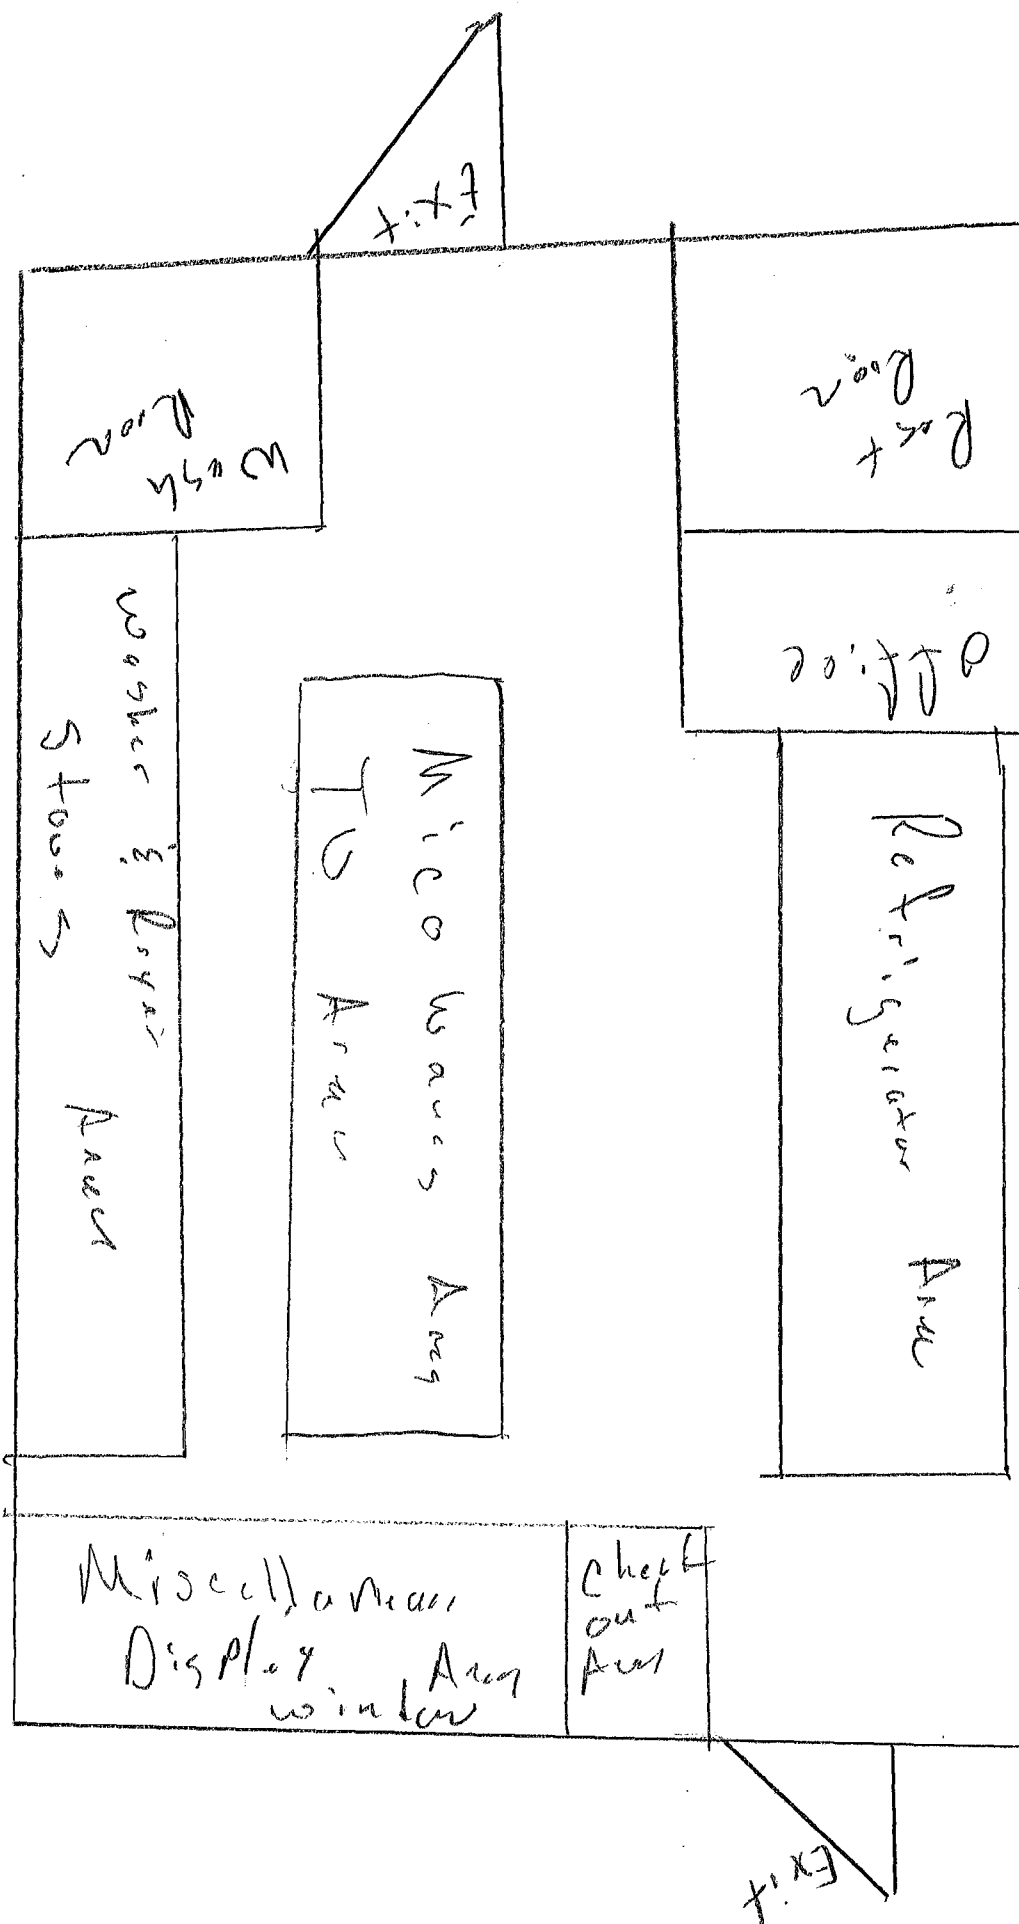 Exit
Wash
Room
Rest
Room
Office
Washer & Dryer
Stoves
Area
Micowaves Area
TV Area
Refrigerator Area
Miscellaneous
Display Area
window
Check
out
Area
Exit